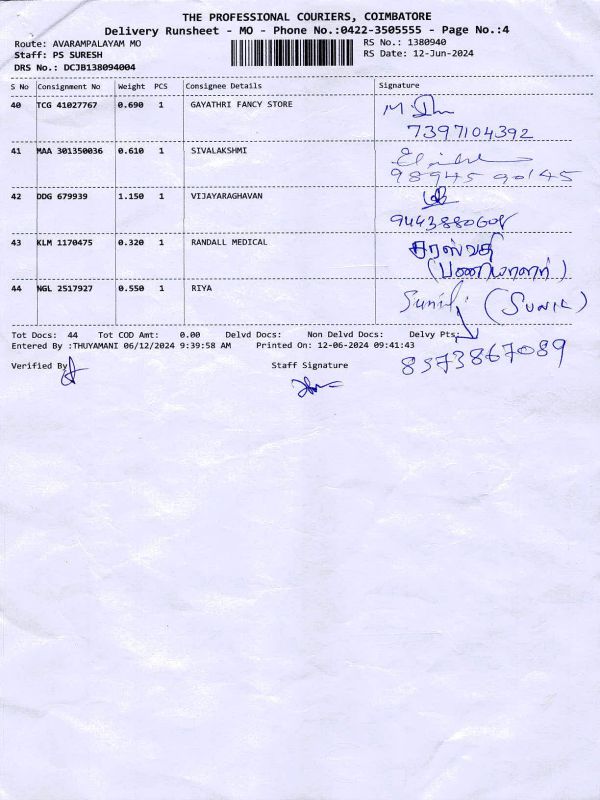 THE PROFESSIONAL COURIERS, COIMBATORE
Delivery Runsheet - MO - Phone No.:0422-3505555 - Page No.:4
Route: AVARAMPALAYAM MO
RS No.: 1380940
Staff: PS SURESH
RS Date: 12-Jun-2024
DRS No.: DCJB138094004
S No Consignment No Weight PCS Consignee Details Signature
40 TCG 41027767 0.690 1 GAYATHRI FANCY STORE
7397104392
41 MAA 301350036 0.610 1 SIVALAKSHMI
98945 90145
42 DDG 679939 1.150 1 VIJAYARAGHAVAN
9443880608
43 KLM 1170475 0.320 1 RANDALL MEDICAL சரஸ்வதி
(பணியாளர்)
44 NGL 2517927 0.550 1 RIYA Sunil (SUNIL)
Tot Docs: 44 Tot COD Amt: 0.00 Delvd Docs: Non Delvd Docs: Delvy Pts:
Entered By :THUYAMANI 06/12/2024 9:39:58 AM Printed On: 12-06-2024 09:41:43
8573867089
Verified By Staff Signature